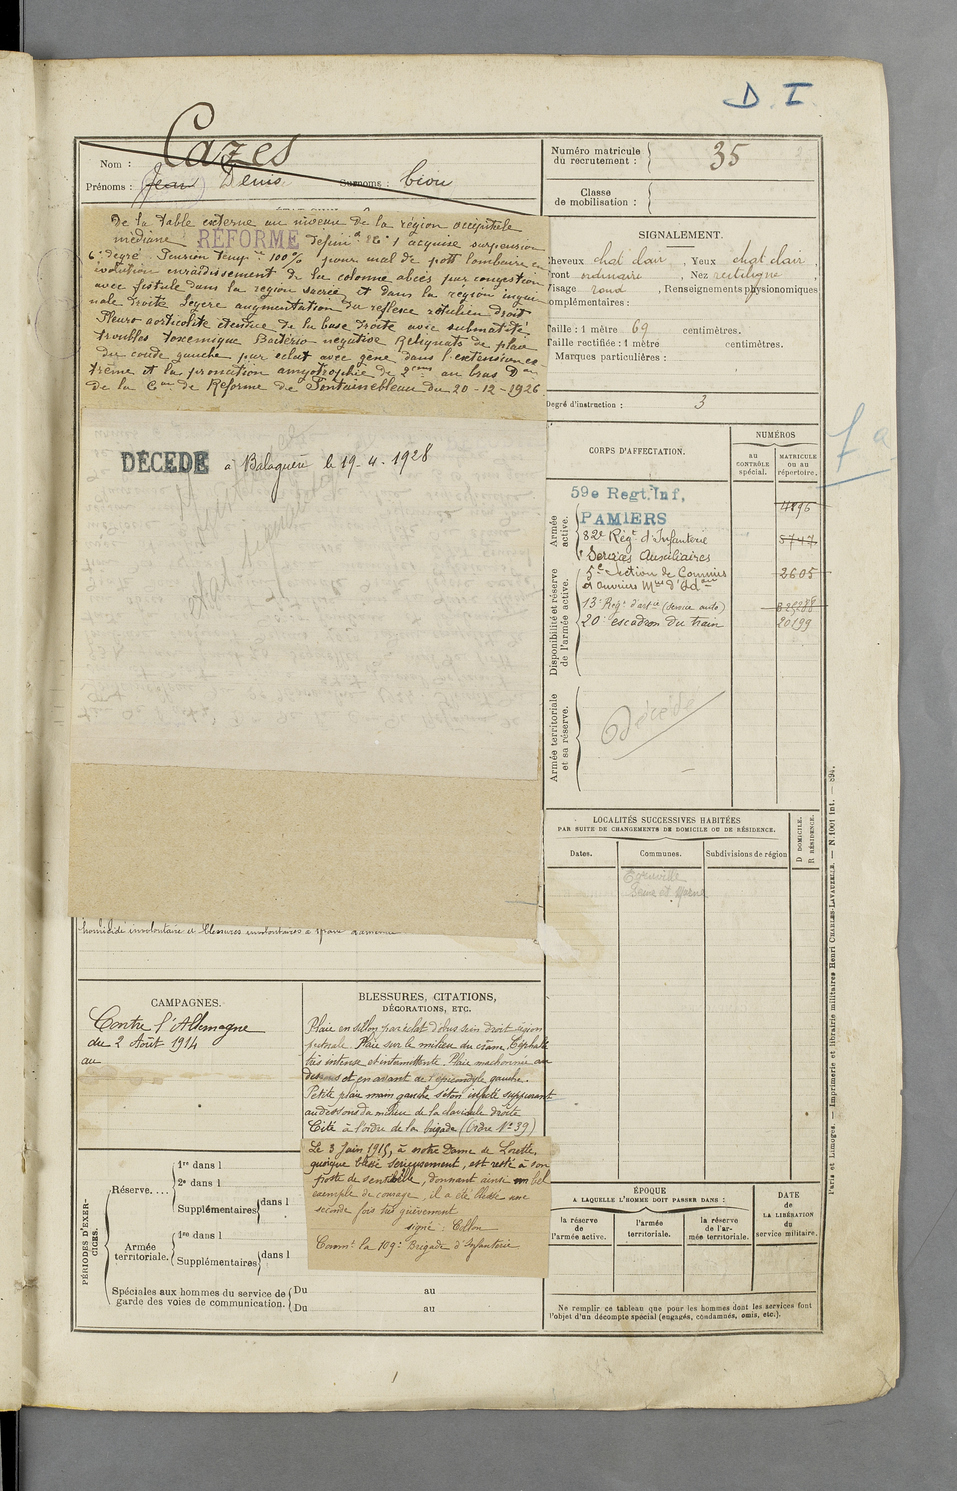 D I
Cazes
Nom :
Prénoms : (Jean) Denis. Surnoms : Cion
Numéro matricule
du recrutement :
35
Classe
de mobilisation :
de la table externe au niveau de la région occipitale
médiane RÉFORME acquise suspension
6e degré Pension 100% pour mal de pott lombaire en
évolution enraidissement de la colonne abcès par congestion
avec fistule dans la région sacrée et dans la région ingui
nale droite légère augmentation du réflexe rotulien droit
Pleuro corticolite étendue de la base droite avec submatité
troubles toxemique Bactério négative Reliquats de plaie
du coude gauche par éclat avec gêne dans l'extension ex
trême et la pronation amyotrophie de 2cms au bras Don
de la Con de Réforme de Fontainebleau du 20-12-1926
DÉCÉDÉ à Balaguères le 19-4-1928
homicide involontaire et blessures involontaires
SIGNALEMENT.
Cheveux chat clair , Yeux chat clair ,
Front ordinaire , Nez rectiligne ,
Visage rond , Renseignements physionomiques
complémentaires :
Taille : 1 mètre 69 centimètres.
Taille rectifiée : 1 mètre centimètres.
Marques particulières :
Degré d'instruction : 3
CORPS D'AFFECTATION.
NUMÉROS
AU
CONTRÔLE
spécial.
MATRICULE
ou au
répertoire.
Armée
active.
59e Regt. Inf,
PAMIERS
4896
82e Régt d'Infanterie
5747
Services Auxiliaires
Disponibilité et réserve
de l'armée active.
5e Section de Commis
et ouvriers Mres d'Adon
2605
13e Régt d'artie (service auto)
20e escadron du train
20199
Armée territoriale
et sa réserve.
Décédé
LOCALITÉS SUCCESSIVES HABITÉES
PAR SUITE DE CHANGEMENTS DE DOMICILE OU DE RÉSIDENCE.
Dates.
Communes.
Subdivisions de région
D DOMICILE.
R RÉSIDENCE.
Seine et Marne
CAMPAGNES.
Contre l'Allemagne
du 2 Août 1914
au
BLESSURES, CITATIONS,
DÉCORATIONS, ETC.
Plaie en sillon par éclat d'obus sein droit région
pectorale. Plaie sur le milieu du crâne. Céphalée
très intense et intermittente. Plaie machonnée au
dessous et en avant de l'épicondyle gauche.
Petite plaie main gauche séton infecté suppurant
au dessous du milieu de la clavicule droite
Cité à l'ordre de la brigade (Ordre No 39)
Le 3 Juin 1915, à notre Dame de Lorette,
quoique blessé sérieusement, est resté à son
poste de sentinelle, donnant ainsi un bel
exemple de courage, il a été blessé une
seconde fois très grièvement
signé : Collon
Commt la 109e Brigade d'Infanterie
PÉRIODES D'EXER-
CICES.
Réserve....
1re dans l
2e dans l
Supplémentaires dans l
Armée
territoriale.
1re dans l
Supplémentaires dans l
Spéciales aux hommes du service de
garde des voies de communication.
Du au
Du au
ÉPOQUE
A LAQUELLE L'HOMME DOIT PASSER DANS :
la réserve
de
l'armée active.
l'armée
territoriale.
la réserve
de l'ar-
mée territoriale.
DATE
de
LA LIBÉRATION
du
service militaire.
Ne remplir ce tableau que pour les hommes dont les services font
l'objet d'un décompte spécial (engagés, condamnés, omis, etc.).
Paris et Limoges. — Imprimerie et librairie militaires Henri CHARLES-LAVAUZELLE. — N. 1001 int. — 894.